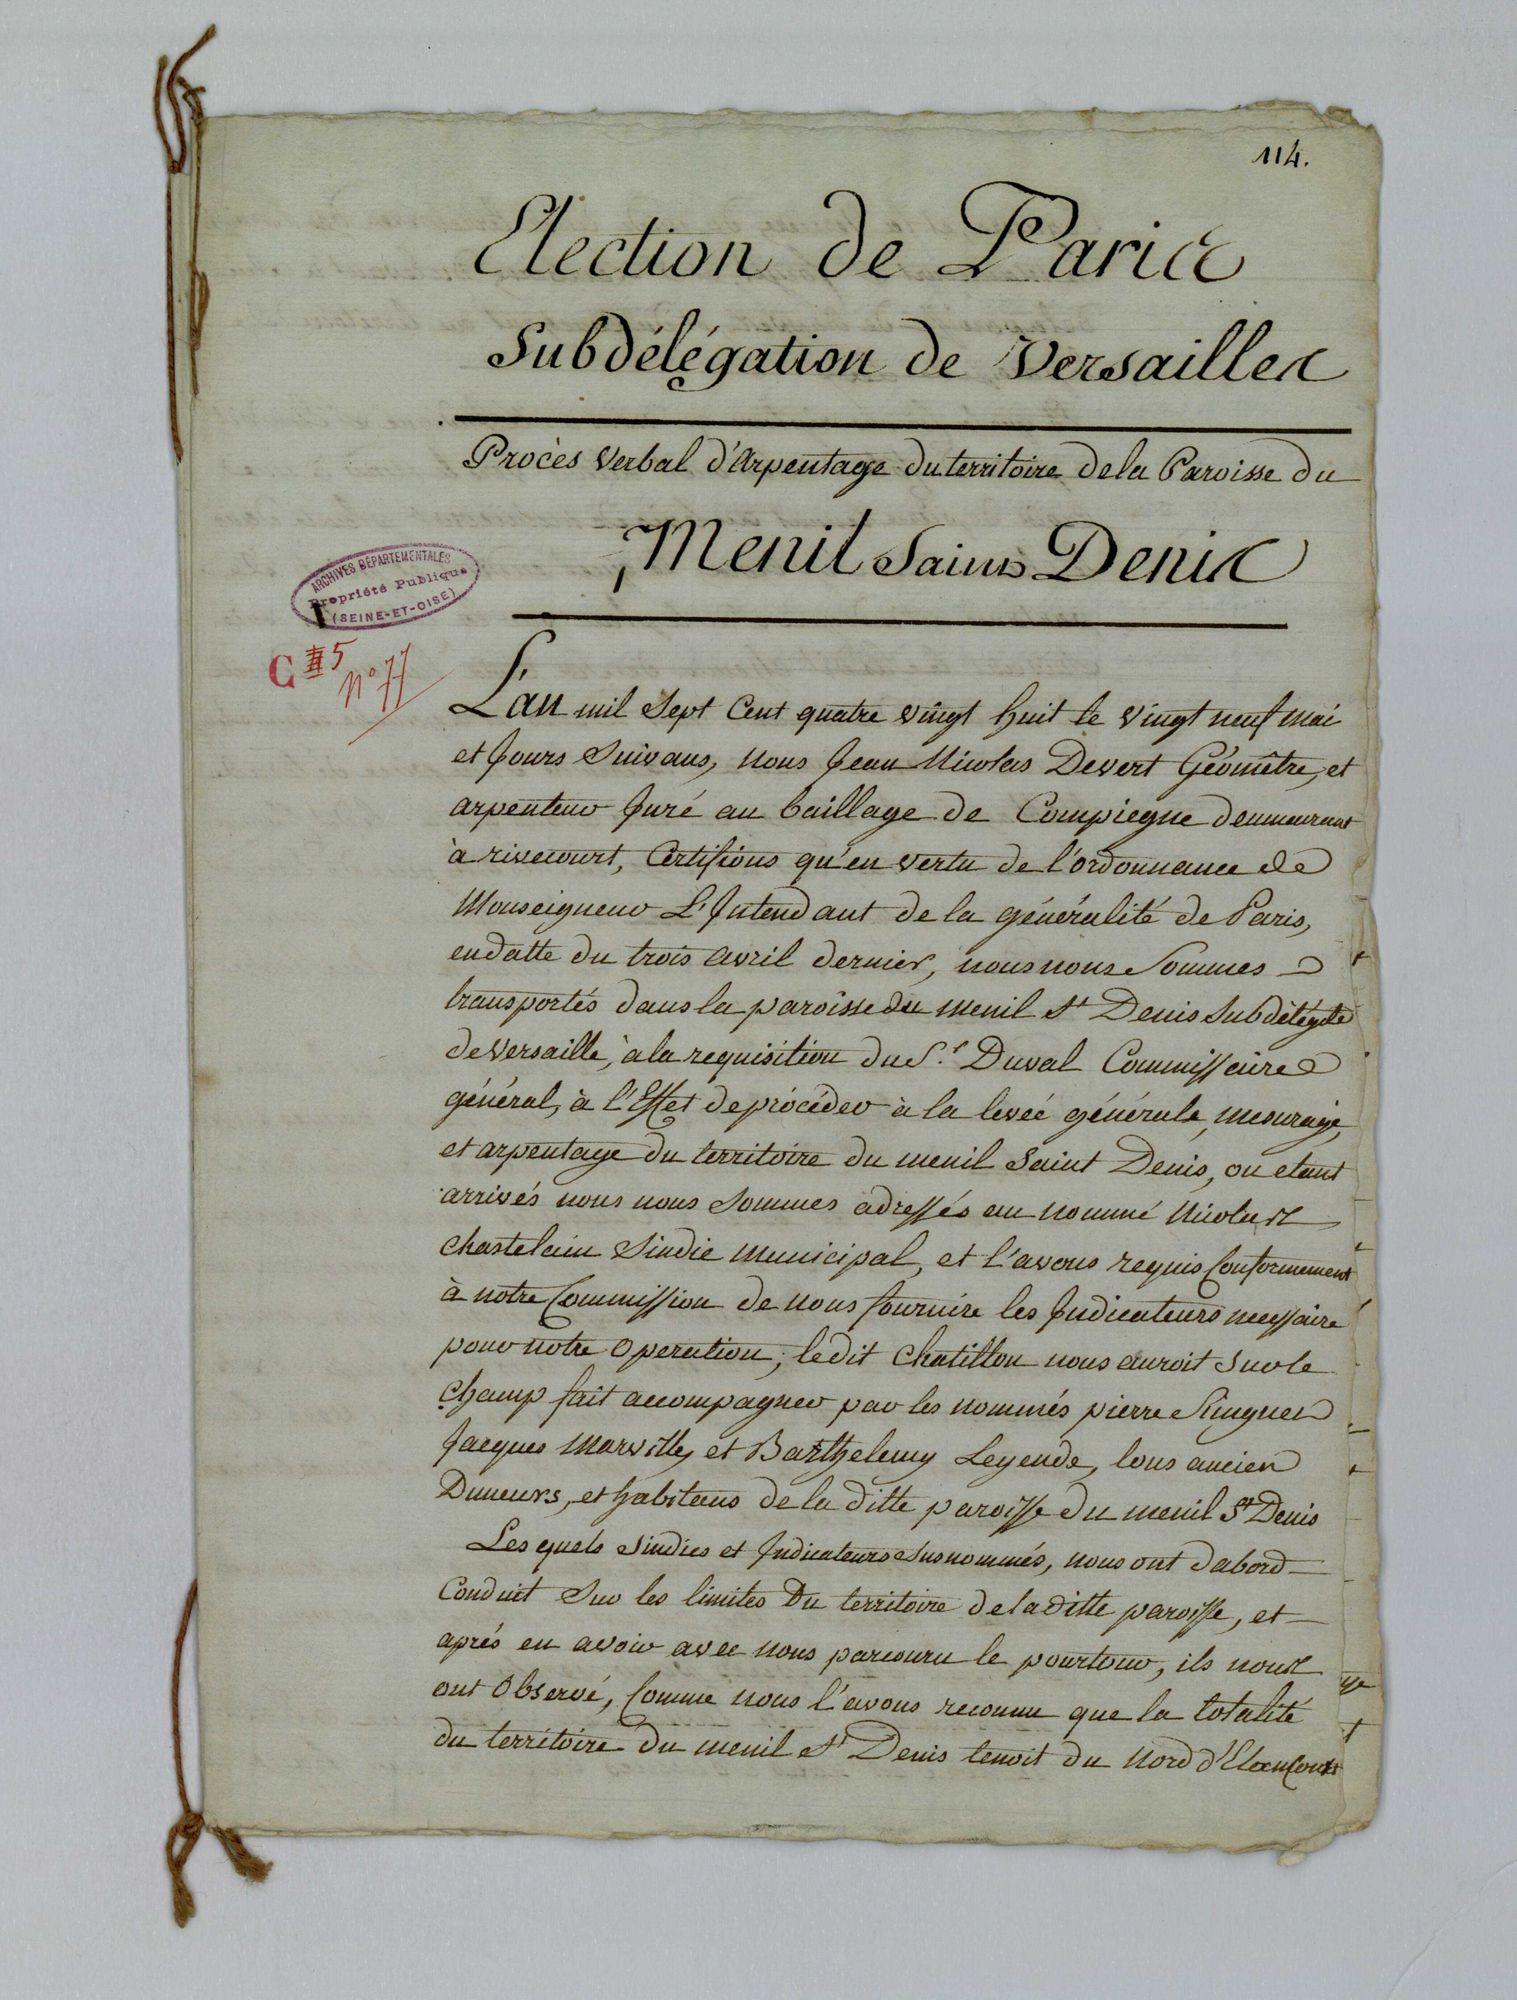 114.
Election de Paris
Subdélégation de Versailles
Procès Verbal d'Arpentage du territoire de la Paroisse du
Menil Saint Denis
ARCHIVES DÉPARTEMENTALES
Propriété Publique
(SEINE-ET-OISE)
C 5
N° 77
L'an mil Sept Cent quatre vingt huit le vingt neuf mai
et Jours Suivans, nous Jean Nicolas Devert Géomêtre, et
arpenteur Juré au baillage de Compiegne demeurant
à rivecourt, Certifions qu'en vertu de l'ordonnance de
Monseigneur L'Intendant de la généralité de Paris,
en datte du trois avril dernier, nous nous Sommes
transportés dans la paroisse du menil St Denis Subdélégde
de Versaille, à la requisition du S.r Duval Commissaire
général, à l'Effet de procéder à la leveé générale, mesurage,
et arpentage du territoire du menil Saint Denis, ou etant
arrivés nous nous Sommes adressés au nommé Nicolas
Chastelain Sindic municipal, et l'avons requis Conformement
à notre Commission de nous fournire les Indicateurs necessaire
pour notre Operation; le dit Chatillon nous auroit Sur le
Champ fait accompagner par les nommés pierre
Jacques Marville, et Barthelemy Legende, tous ancien
Dimeurs, et habitans de la ditte paroisse du menil St Denis
Les quels Sindics et Indicateurs Susnommés, nous ont dabord
Conduit Sur les limites Du territoire de la ditte paroisse, et
aprés en avoir avec nous parcouru le pourtour, ils nous
ont Observé, Comme nous l'avons reconnu que la totalité
du territoire du menil St Denis tenoit du Nord d'Elancourt